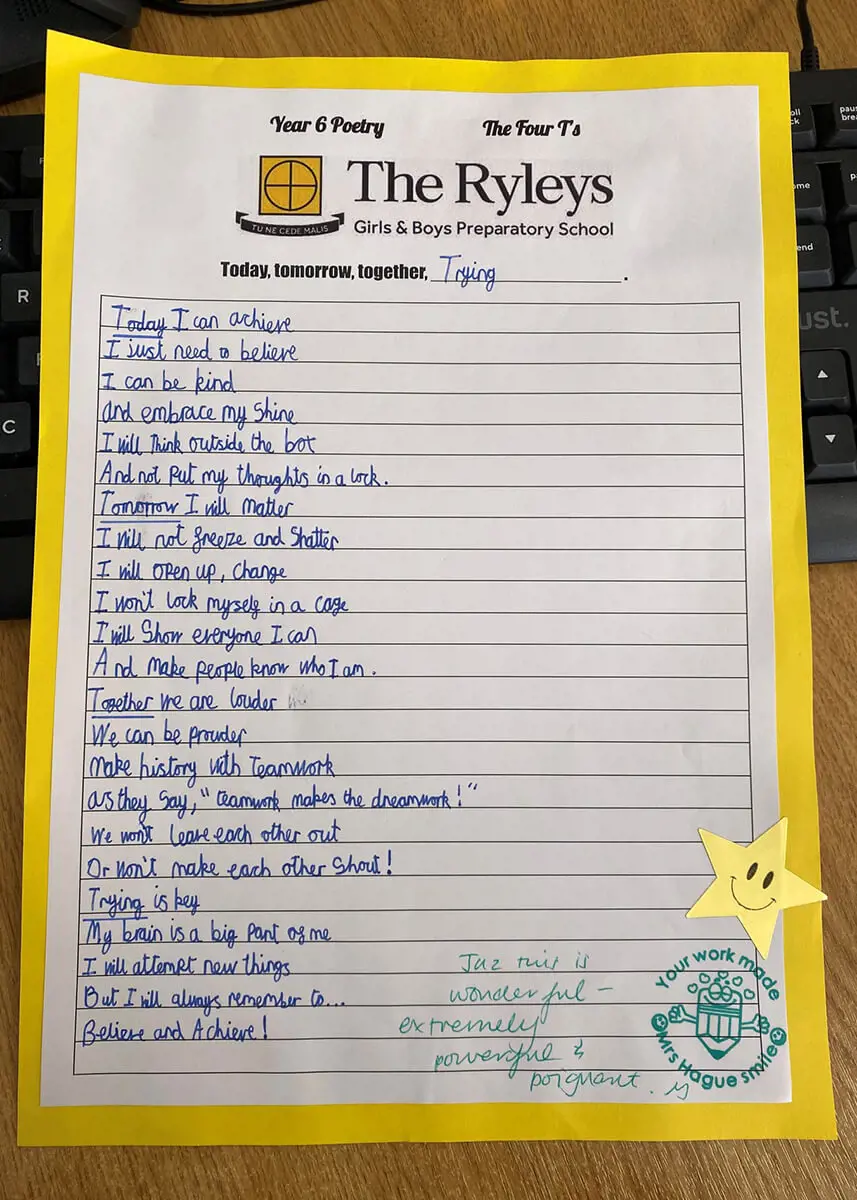 Year 6 Poetry The Four T's
The Ryleys
TU NE CEDE MALIS
Girls & Boys Preparatory School
Today, tomorrow, together, Trying.
Today I can achieve
I just need to believe
I can be kind
and embrace my shine
I will think outside the box
And not put my thoughts in a lock.
Tomorrow I will matter
I will not freeze and shatter
I will open up, change
I won't lock myself in a cage
I will show everyone I can
And make people know who I am.
Together we are louder
We can be prouder
Make history with teamwork
as they say, "teamwork makes the dreamwork!"
We won't leave each other out
Or won't make each other shout!
Trying is key
My brain is a big part of me
I will attempt new things
But I will always remember to...
Believe and Achieve!
Jaz this is
wonderful -
extremely
powerful &
poignant.
Your work made
Mrs Hague smile
R
C
end
ust.